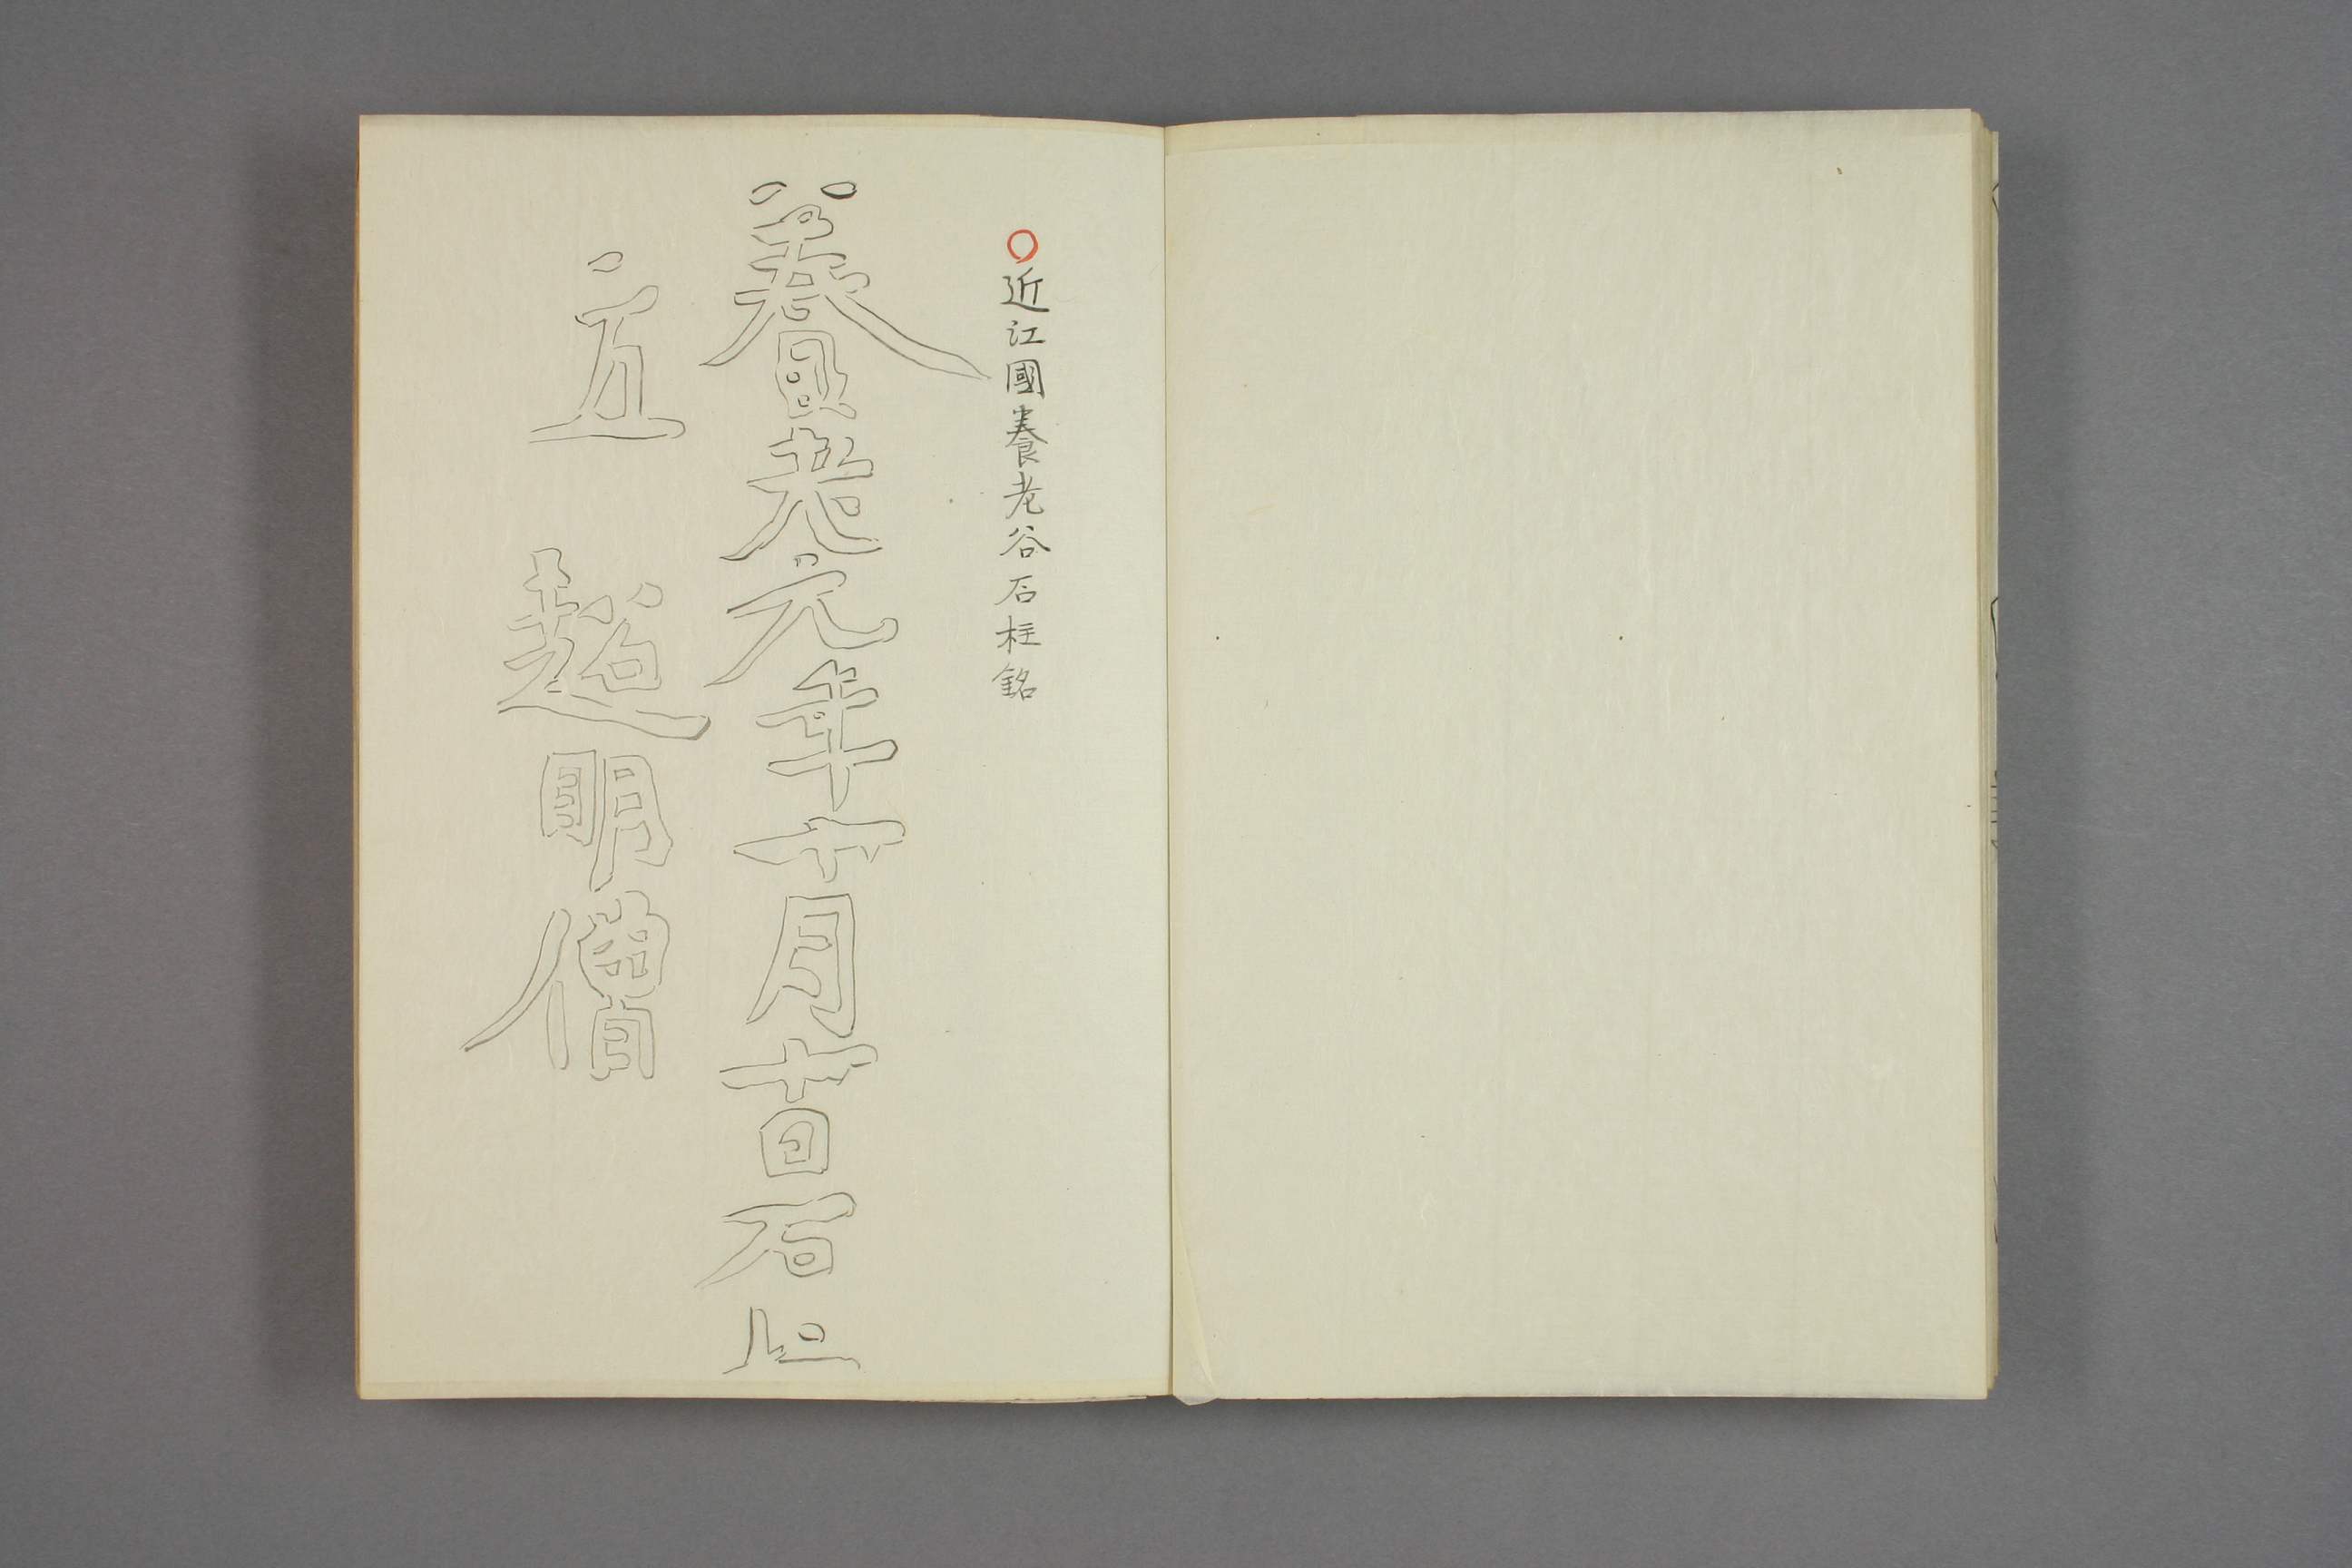 〇近江國養老谷石柱銘
養老元年十月十日石
立 超明僧